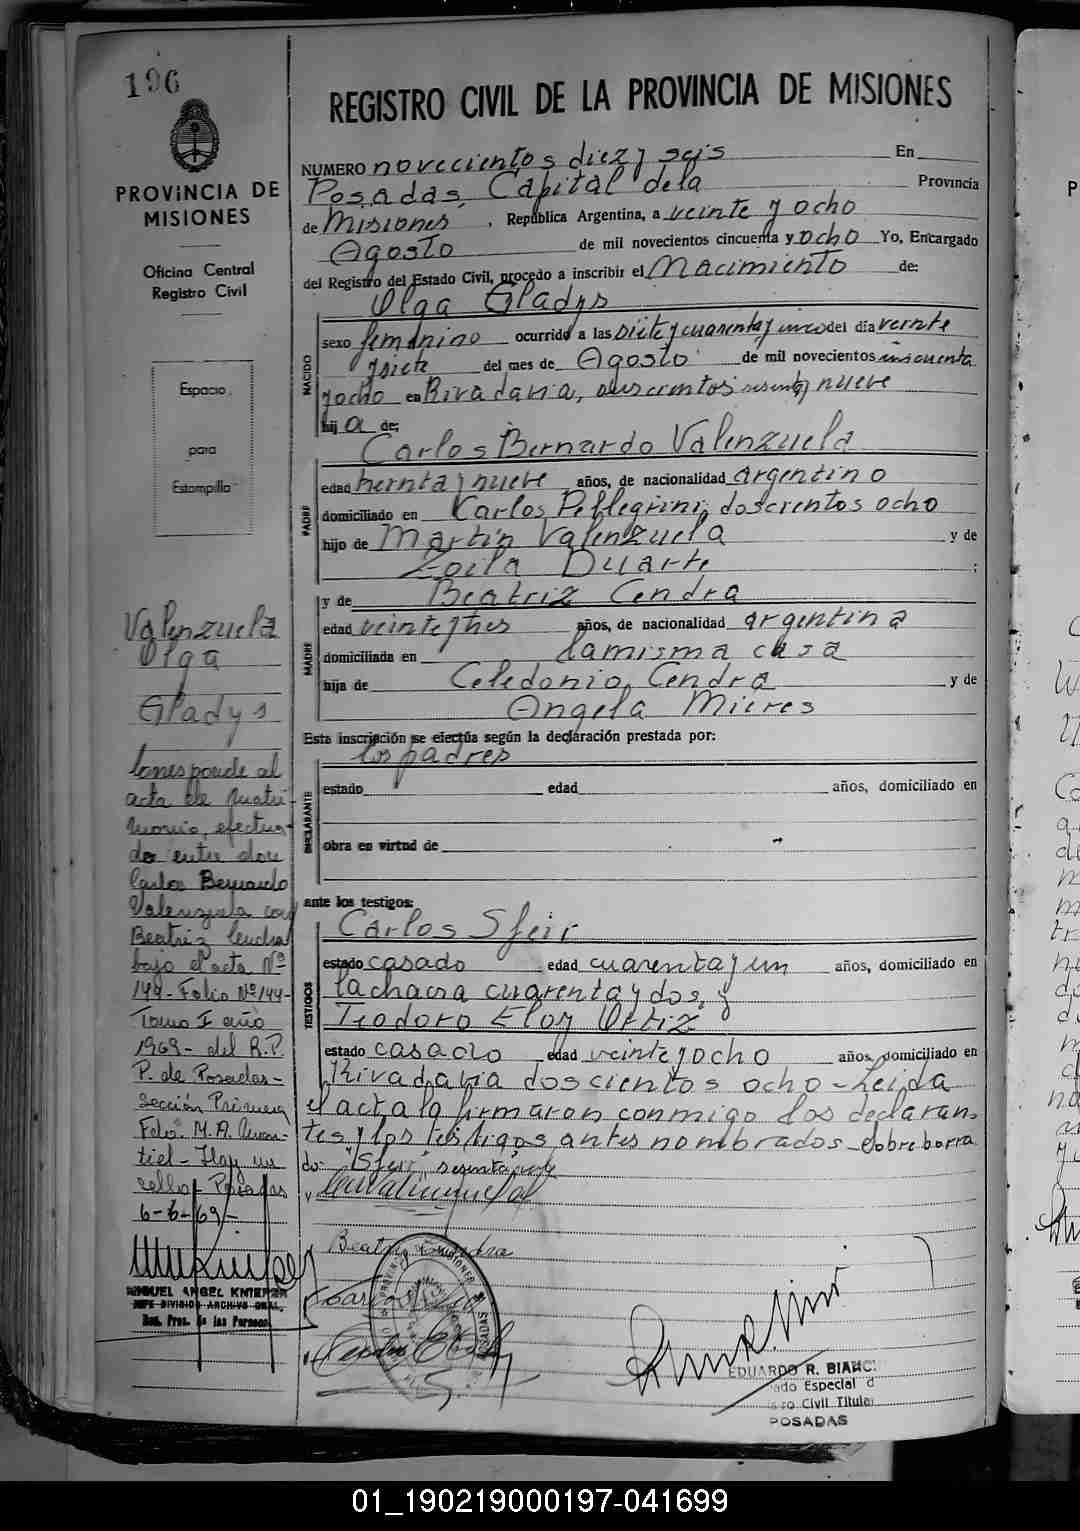 196
PROVINCIA DE
MISIONES
Oficina Central
Registro Civil
Espacio
para
Estampilla
Valenzuela
Olga
Gladys
Corresponde al
acta de matri-
monio, efectua-
do entre don
Carlos Bernardo
Valenzuela con
Beatriz Cendra
bajo el acta Nº
144- Folio Nº 144-
Tomo I año
1969- del R.P.
P. de Posadas-
Sección Primera
Fdo. M. A.
tiel- Hay un
sello- Posadas
6-6-69-
MIGUEL ANGEL KNIEPER
JEFE DIVISION ARCHIVO GRAL.
Reg. Prov. de las Personas
REGISTRO CIVIL DE LA PROVINCIA DE MISIONES
NUMERO novecientos diez y seis En
Posadas, Capital dela Provincia
de Misiones, República Argentina, a veinte y ocho
Agosto de mil novecientos cincuenta y ocho Yo, Encargado
del Registro del Estado Civil, procedo a inscribir el Nacimiento de:
Olga Gladys
NACIDO
sexo femenino ocurrido a las siete y cuarenta y cinco del día veinte
y siete del mes de Agosto de mil novecientos cincuenta
y ocho en Rivadavia, doscientos sesenta y nueve
hij a de:
Carlos Bernardo Valenzuela
PADRE
edad treinta y nueve años, de nacionalidad argentino
domiciliado en Carlos Pellegrini, doscientos ocho
hijo de Martín Valenzuela y de
Zoila Duarte ;
y de Beatriz Cendra
MADRE
edad veinte y tres años, de nacionalidad argentina
domiciliada en la misma casa
hija de Celedonio Cendra y de
Angela Mieres
Esta inscripción se efectúa según la declaración prestada por:
los padres
DECLARANTE
estado edad años, domiciliado en
obra en virtud de
ante los testigos:
Carlos Sfeir
TESTIGOS
estado casado edad cuarenta y un años, domiciliado en
la chacra cuarenta y dos, y
Teodoro Eloy Ortiz
estado casado edad veinte y ocho años, domiciliado en
Rivadavia doscientos ocho - Leida
el acta la firmaron conmigo los declaran-
tes y los testigos antes nombrados - Sobreborra
do: "Sfeir", sesenta, nueve
Beatriz Cendra
EDUARDO R. BIANC
ado Especial d
ro Civil Titular
POSADAS
01_190219000197-041699